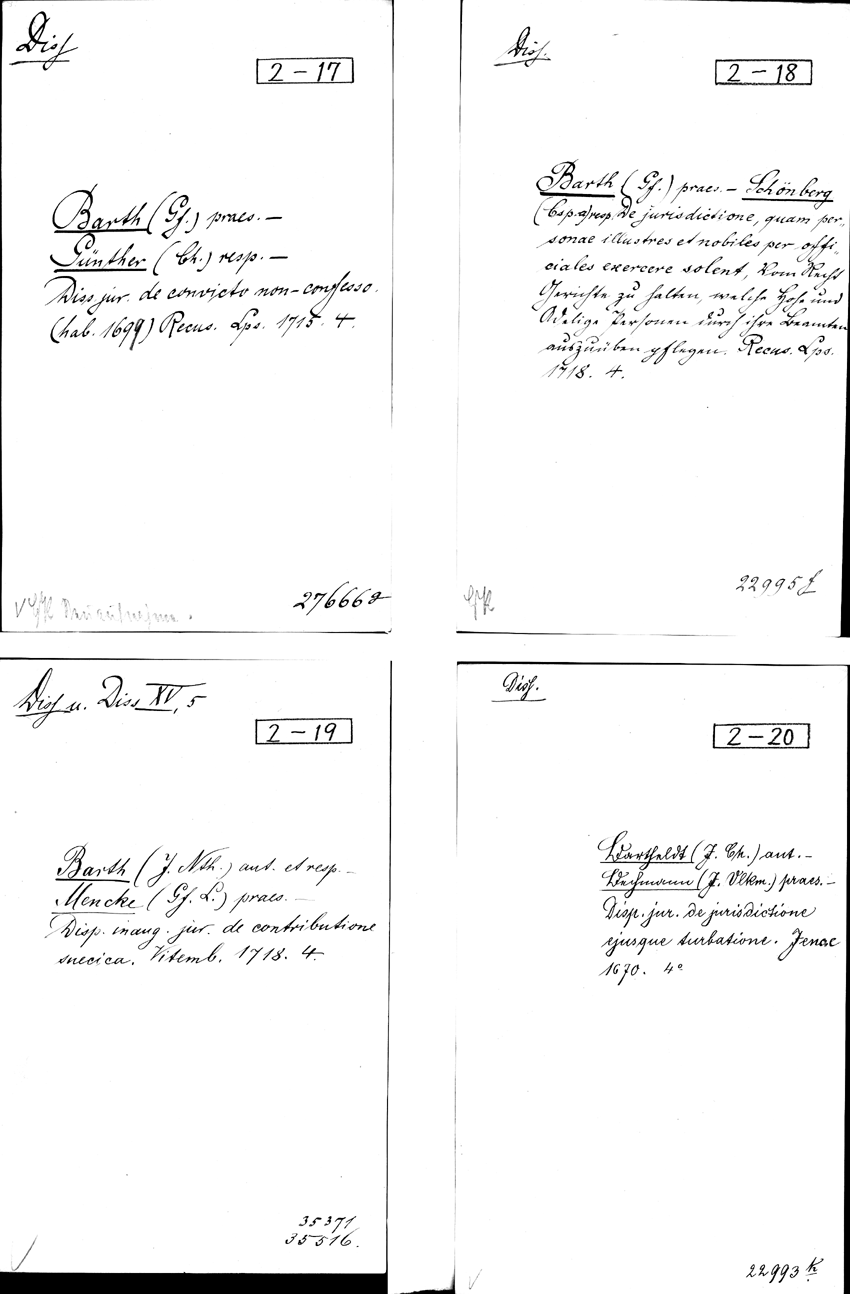 Diss
2 – 17
Barth (Gf.) praes. —
Günther (Ch.) resp. —
Diss. jur. de convicto non-confesso.
(hab. 1699) Recus. Lps. 1715. 4.
27666g
Diss.
2 – 18
Barth (Gf.) praes. — Schönberg
(Csp. a) resp. De jurisdictione, quam per-
sonae illustres et nobiles per offi-
ciales exercere solent, Vom Recht
Gerichte zu halten, welche Hohe und
Adelige Personen durch ihre Beamten
auszuüben pflegen. Recus. Lps.
1718. 4.
22995f
Diss u. Diss XV, 5
2 – 19
Barth (J. Nth.) aut. et resp. —
Mencke (Gf. L.) praes. —
Disp. inaug. jur. de contributione
suecica. Vitemb. 1718. 4.
35371
35516.
Diss.
2 – 20
Bartheldt (J. Ch.) aut. —
Bechmann (J. Vlkm.) praes. —
Disp. jur. de jurisdictione
ejusque turbatione. Jenae
1670. 4°
22993k